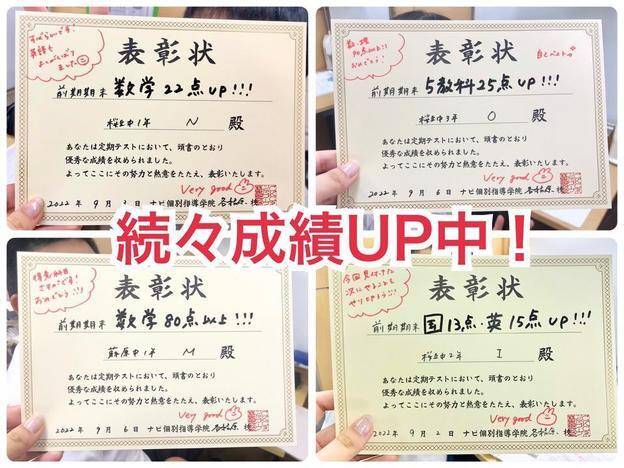 すばらしいです!
英語も
表彰状
前期期末 数学22点UP!!!
桜丘中1年 N 殿
あなたは定期テストにおいて、頭書のとおり
優秀な成績を収められました。
よってここにその努力と熱意をたたえ、表彰いたします。
Very good
2022年 9月 6日 ナビ個別指導学院
おめでとう!
自己ベスト
表彰状
前期期末 5教科25点UP!!!
桜丘中3年 O 殿
あなたは定期テストにおいて、頭書のとおり
優秀な成績を収められました。
よってここにその努力と熱意をたたえ、表彰いたします。
Very good
2022年 9月 6日 ナビ個別指導学院
続々成績UP中!
さすがです!
おめでとう!!!
表彰状
前期期末 数学80点以上!!!
藤原中1年 M 殿
あなたは定期テストにおいて、頭書のとおり
優秀な成績を収められました。
よってここにその努力と熱意をたたえ、表彰いたします。
Very good
2022年 9月 6日 ナビ個別指導学院
表彰状
前期期末 国13点・英15点UP!!!
桜丘中2年 I 殿
あなたは定期テストにおいて、頭書のとおり
優秀な成績を収められました。
よってここにその努力と熱意をたたえ、表彰いたします。
Very good
2022年 9月 2日 ナビ個別指導学院